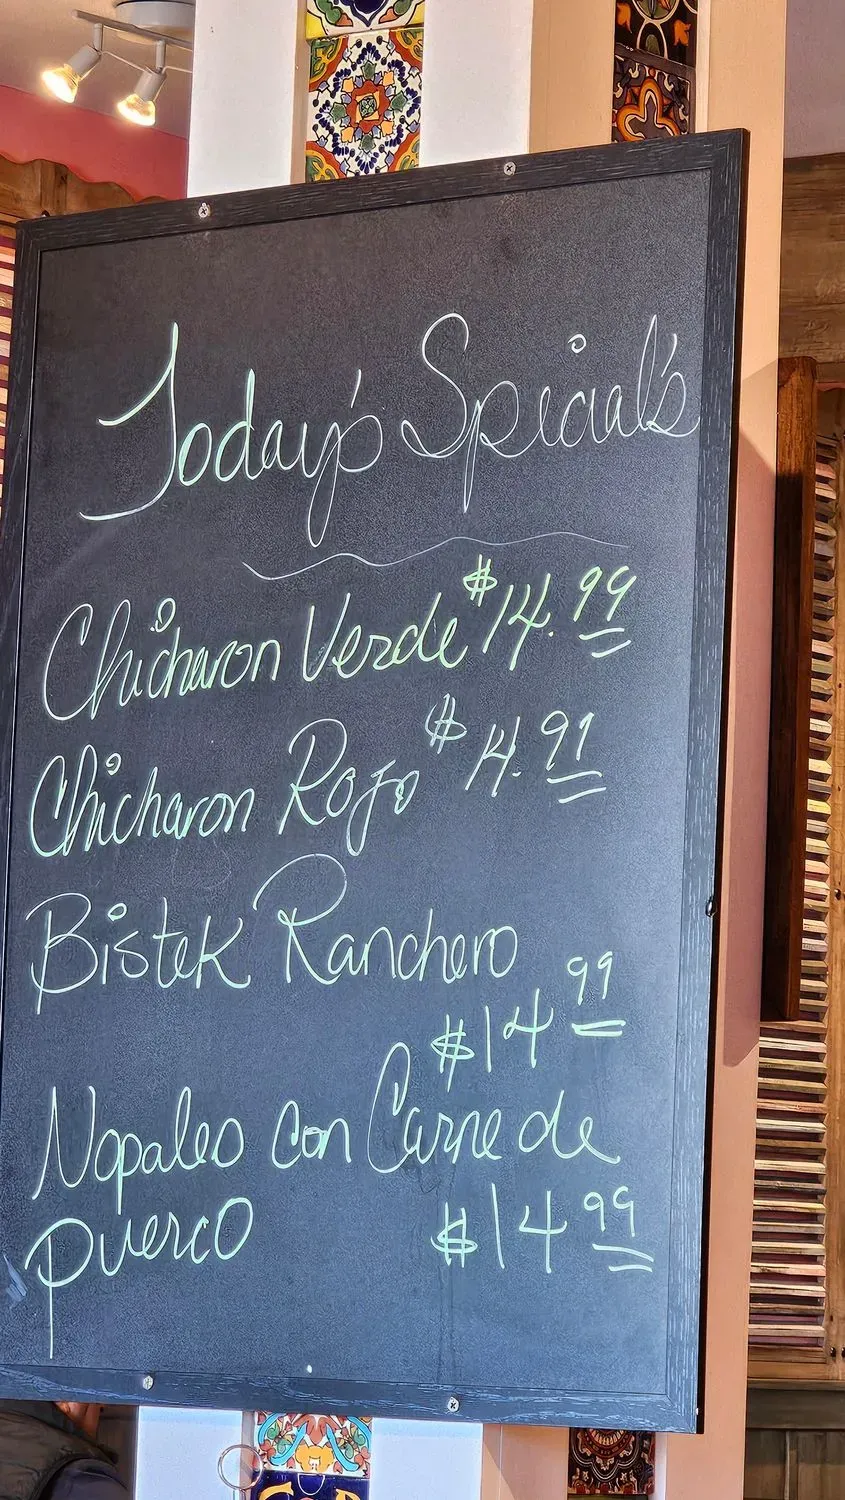 Today's Special's
Chicharon Verde $14.99
Chicharon Rojo $14.99
Bistek Ranchero
$14 99
Nopales con Carne de
puerco $14 99